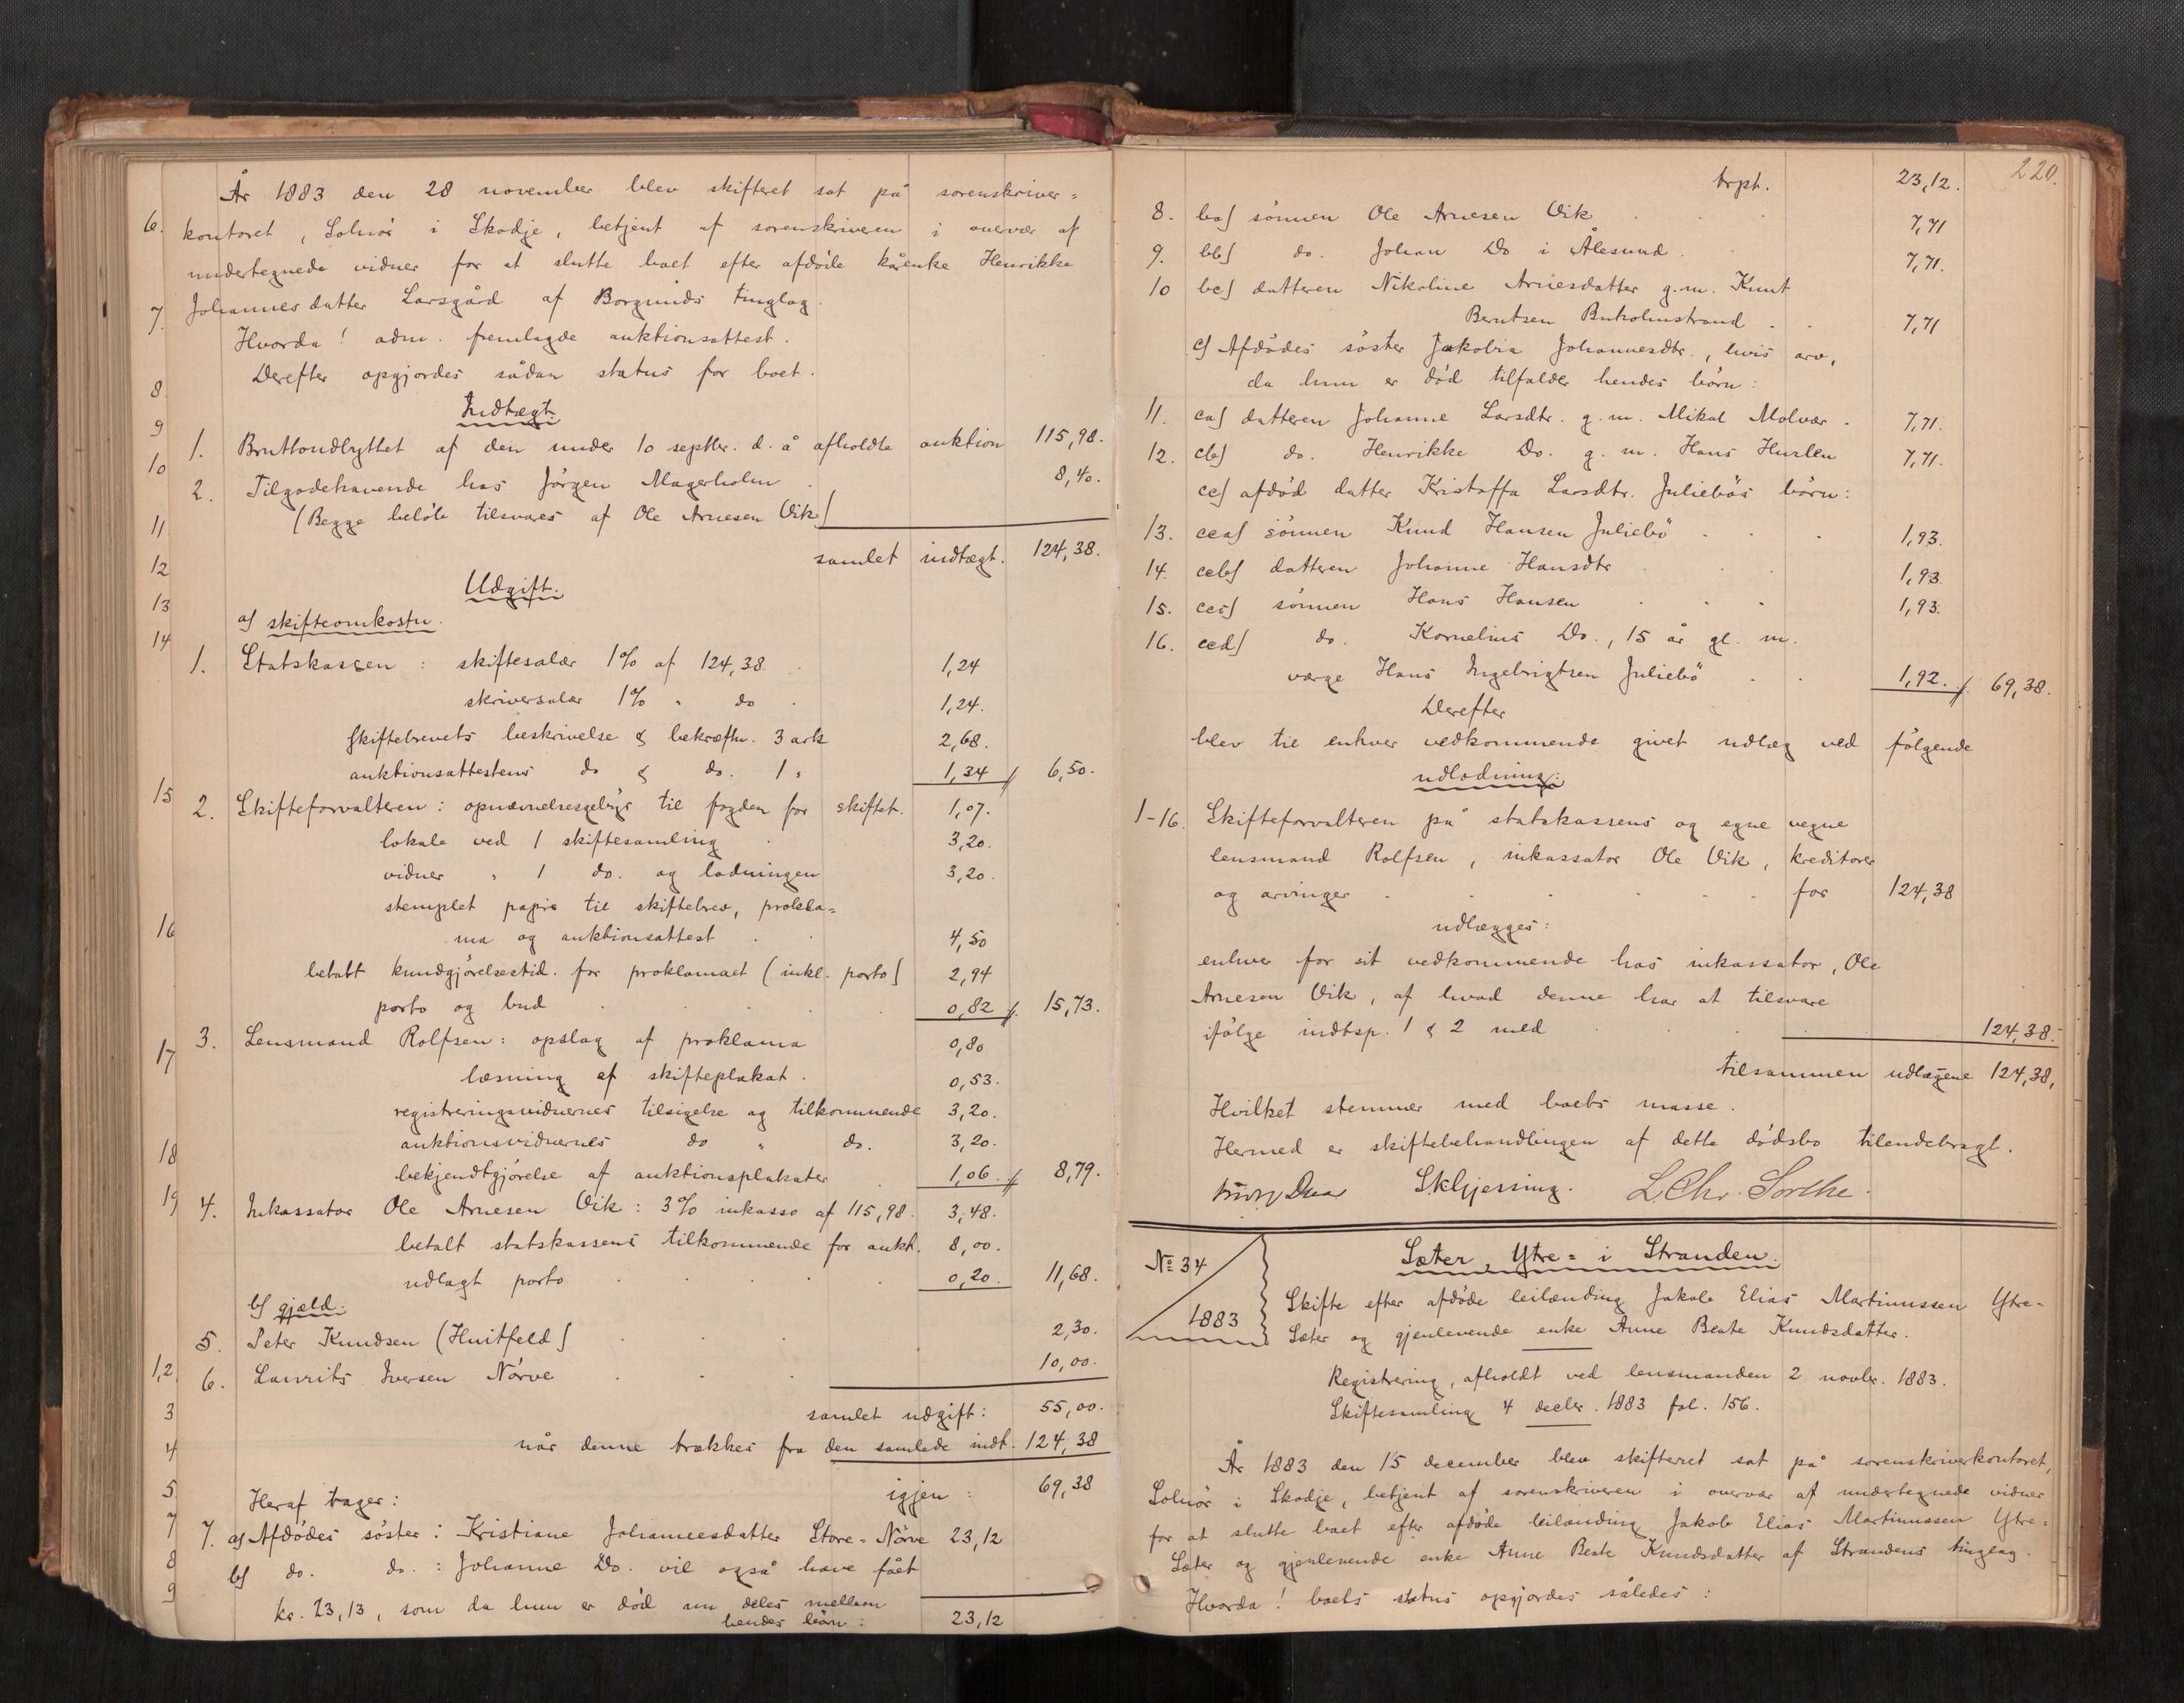 År 1883 den 28 november blev skifteret sat på sorenskriver=
6. kontoret, Solnör i Skodje, betjent af sorenskriveren i overvær af
undertegnede vidner for at slutte boet efter afdöde kårenke Henrikke
7. Johannesdatter Larsgård af Borgunds tinglag.
Hvorda! adm. fremlagde auktionsattest.
Derefter opgjordes sådan status for boet.
8.
Indtægt.
9
1. Bruttoudbyttet af den under 10 septbr. d. å afholdte auktion 115,98.
10
2. Tilgodehavende hos Jörgen Magerholm 8,40.
(Begge belöb tilsvares af Ole Arnesen Vik)
11
samlet indtægt. 124,38.
12
Udgift.
13
a) skifteomkostn.
14
1. Statskassen: skiftesalær 1% af 124,38. 1,24
skriversalær 1% " do 1,24.
skiftebrevets beskrivelse & bekræftn. 3 ark 2,68.
auktionsattestens do & do. 1 " 1,34 6,50.
15
2. Skifteforvalteren: opnævnelsesgebyr til fogden for skiftet. 1,07.
lokale ved 1 skiftesamling 3,20.
vidner " 1 do. og lodningen 3,20.
stemplet papir til skiftebrev, prokla=
16
ma og auktionsattest 4,50
betalt kundgjörelsestid. for proklamaet (inkl. porto) 2,94
porto og bud 0,82 15,73.
3. Lensmand Rolfsen: opslag af proklama 0,80
17
læsning af skifteplakat. 0,53.
registreringsvidnernes tilsigelse og tilkommende 3,20.
auktionsvidnernes do " do. 3,20.
18
bekjendtgjörelse af auktionsplakater 1,06. 8,79.
19
4. Inkassator Ole Arnesen Vik: 3% inkasso af 115,98. 3,48.
betalt statskassens tilkommende for aukt. 8,00.
udlagt porto 0,20. 11,68.
b) gjæld.
5. Peter Knudsen (Huitfeld) 2,30.
1,2
6. Laurits Iversen Nörve 10,00.
3
samlet udgift: 55,00.
4
når denne trækkes fra den samlede indt. 124,38
5
igjen: 69,38
Heraf tager:
7
7. a) Afdödes söster: Kristiane Johannesdatter Store=Nörve 23,12
8
b) do. do.: Johanne Do. vil også have fået
9
kr. 23,13, som da hun er död nu deles mellem
hendes börn: 23,12
220.
trpt. 23,12.
8. ba) sönnen Ole Arnesen Vik 7,71
9. bb) do. Johan Do i Ålesund 7,71.
10 bc) datteren Nikoline Arnesdatter g.m. Knut
Berntsen Buholmstrand 7,71
c) Afdödes söster Jakobia Johannesdtr., hvis arv,
da hun er död tilfalder hendes börn:
11. ca) datteren Johanne Larsdtr. g. m. Mikal Molvær 7,71.
12. cb) do. Henrikke Do. g. m. Hans Hurlen 7,71.
cc) afdöd datter Kristoffa Larsdtr. Juliebös börn:
13. cca) sönnen Knud Hansen Juliebö 1,93.
14. ccb) datteren Johanne Hansdtr 1,93.
15. ccc) sönnen Hans Hansen 1,93.
16. ccd) do. Kornelius Do., 15 år gl. m.
værge Hans Ingebrigtsen Juliebö 1,92. 69,38.
Derefter
blev til enhver vedkommende givet udlæg ved följgende
udlodning:
1-16. Skifteforvalteren på statskassens og egne vegne
lensmand Rolfsen, inkassator Ole Vik, kreditorer
og arvinger for 124,38
udlægges:
enhver for sit vedkommende hos inkassator, Ole
Arnesen Vik, af hvad denne har at tilsvare
ifölge indtsp. 1 & 2 med 124,38.
tilsammen udlægene 124,38,
Hvilket stemmer med boets masse.
Hermed er skiftebehandlingen af dette dödsbo tilendebragt.
L. Chr. Sorthe.
No 34 1883
Sæter, Ytre= i Stranden.
Skifte efter afdöde leilænding Jakob Elias Martinussen Ytre-
Sæter og gjenlevende enke Anne Beate Knudsdatter.
Registrering, afholdt ved lensmanden 2 novbr. 1883.
Skiftesamling 4 decbr. 1883 fol. 156.
År 1883 den 15 december blev skifteret sat på sorenskriverkontoret,
Solnör i Skodje, betjent af sorenskriveren i overvær af undertegnede vidner
for at slutte boet efter afdöde leilænding Jakob Elias Martinussen Ytre=
Sæter og gjenlevende enke Anne Beate Knudsdatter af Strandens tinglag.
Hvorda! boets status opgjordes således: